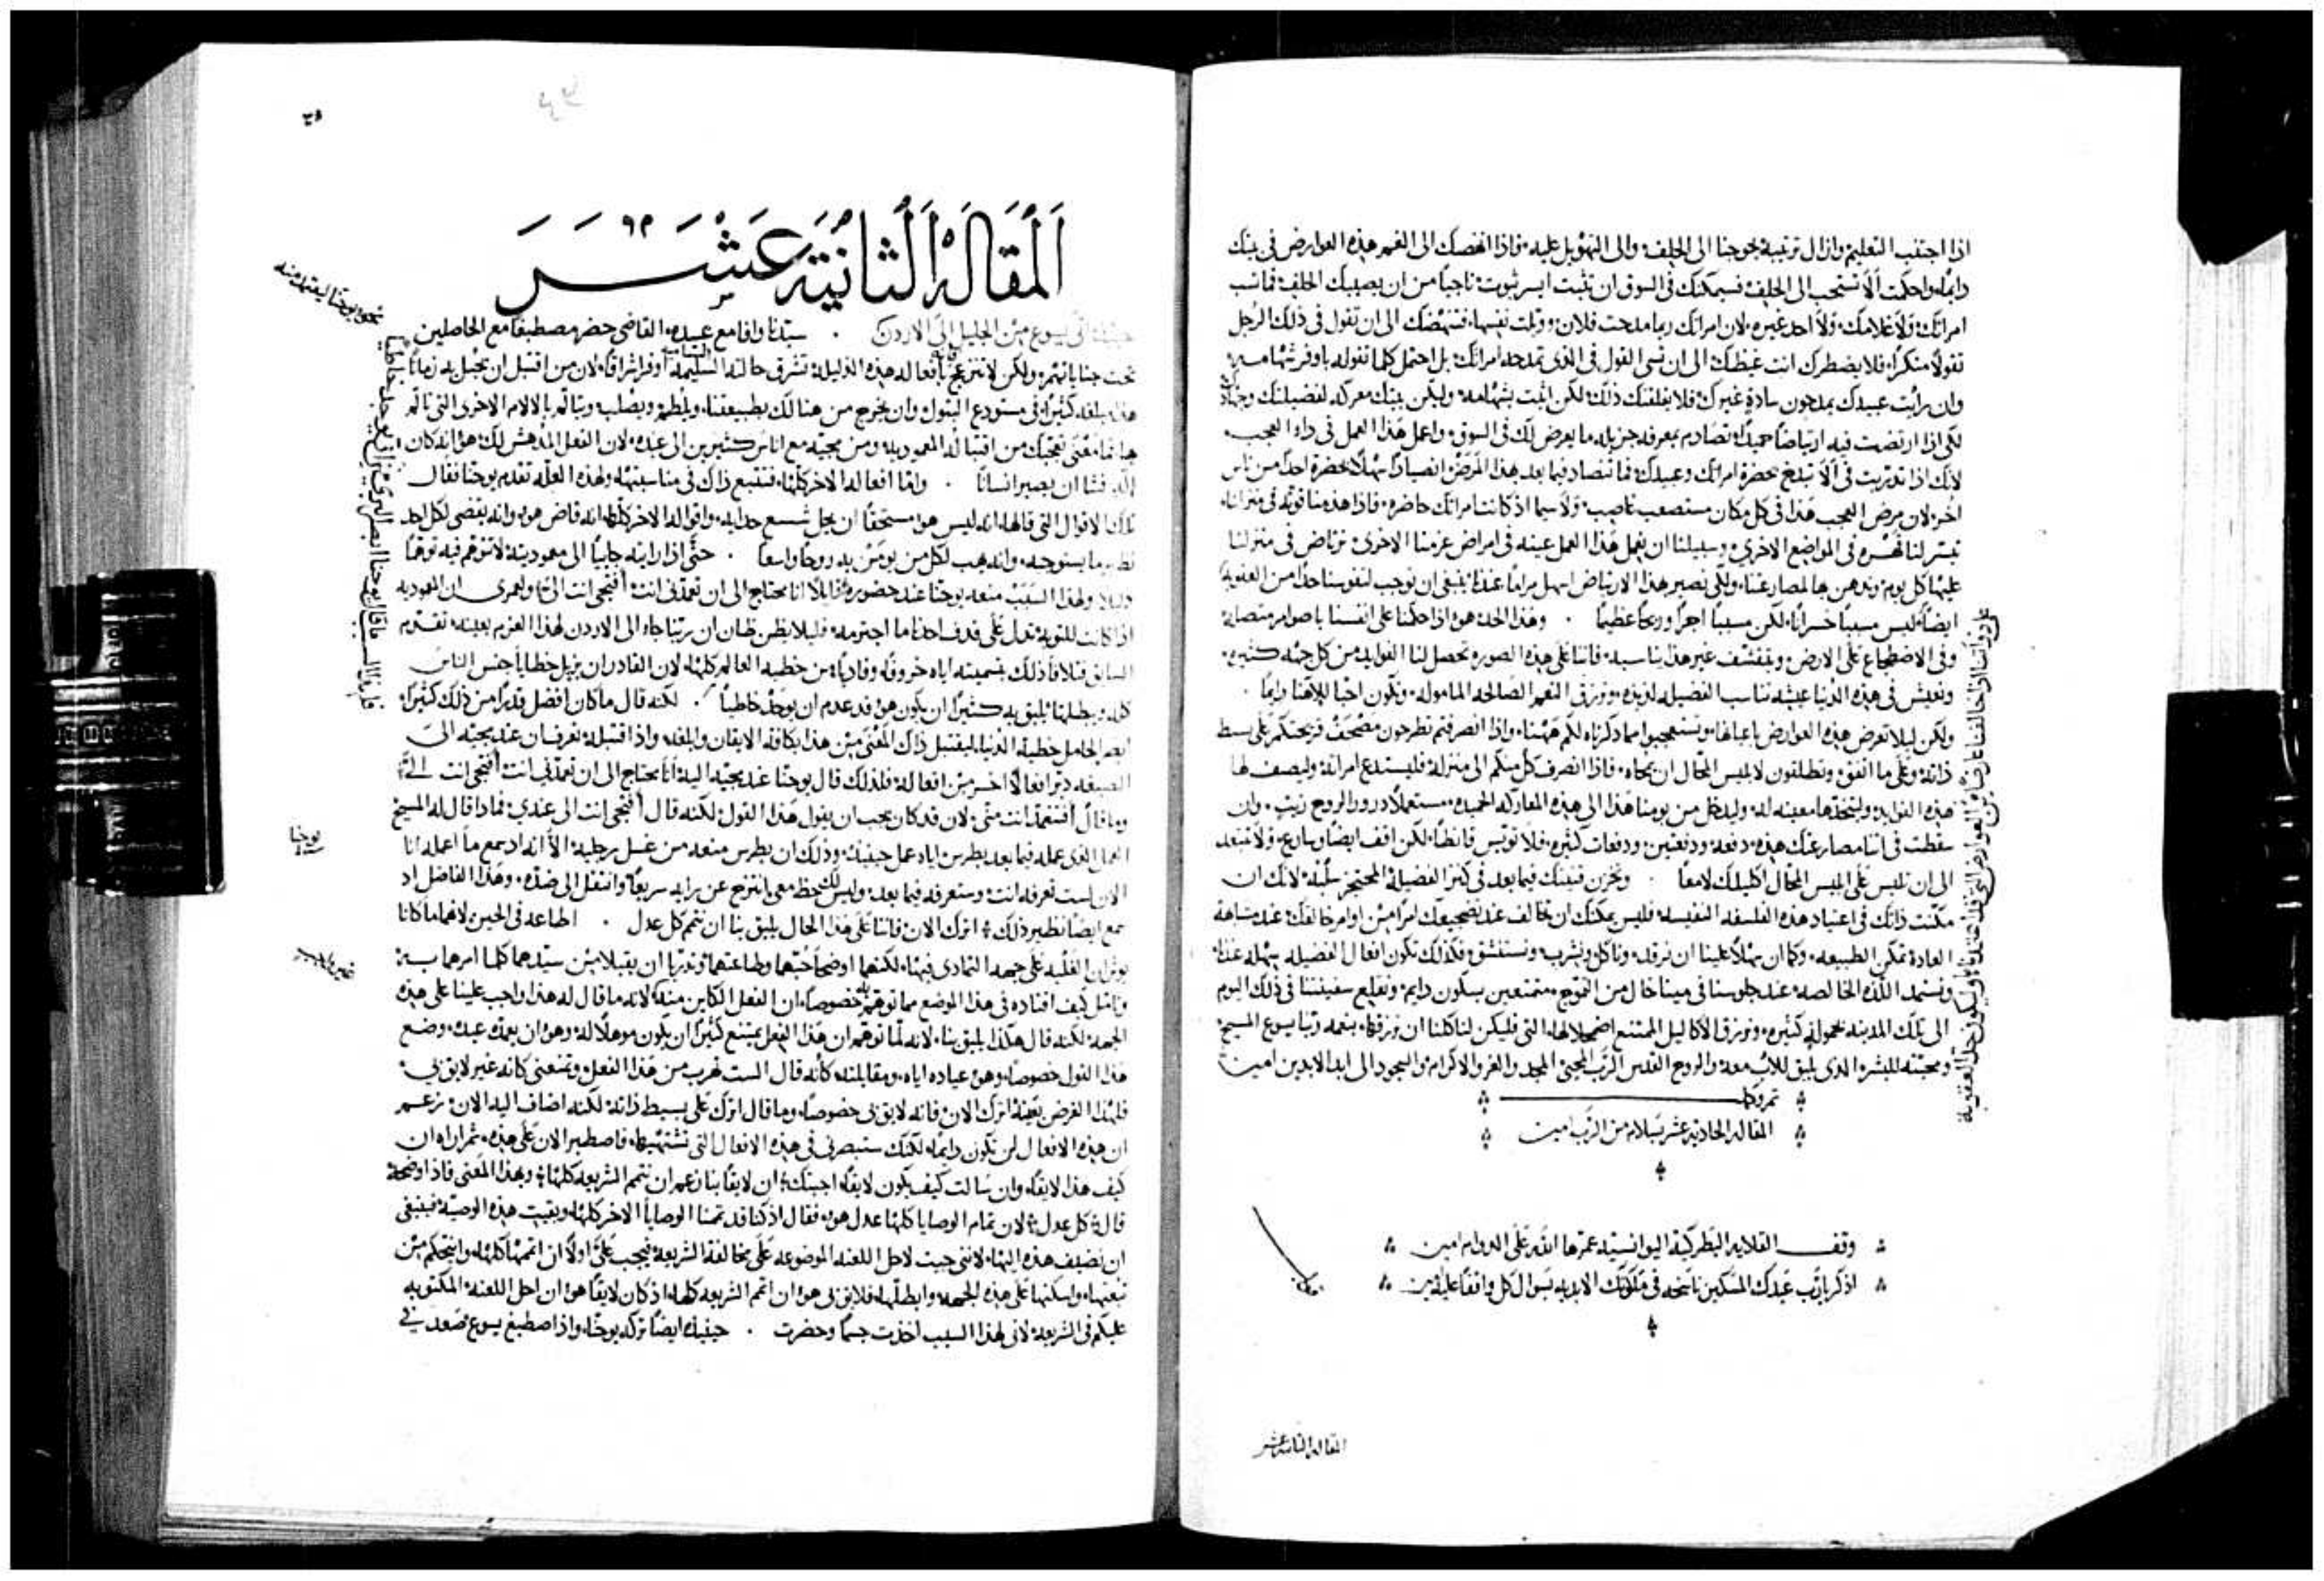 اذا اجتنب التعليم وازال ترتيبه يخرجنا الى الحلف والى التهويل عليه فاذا انهضك الى الغم هذه العوارض في بيتك
دايماً واحكمت ألا تستحب الى الحلف فسيمكنك في السوق ان تثبت ايسر ثبوت ناجياً من ان يصيبك الحلف فما تسب
امراتك ولا غلامك ولا احد غيره لان امراتك ربما مدحت فلان وويلت نفسها فتنهضك الى ان تقول في ذلك الرجل
تقولاً منكراً فلا يضطرك انت غيظك الى ان تسي القول في الذي تمدحه امراتك بل احتمل كلما تقوله باوفر شهامه
وان رايت عبيدك يمدحون سادةٍ غيرك فلا يقلقنك ذلك لكن اثبت بشهامه وليكن بيتك معركه لفضيلتك وجهاد
لكي اذا ارتضت فيه ارتياضاً حميداً تصادم بمعرفه جزيله ما يعرض لك في السوق واعمل هذا العمل في داء العجب
لانك اذا تدربت في ألا تبلغ بحضرة امراتك وعبيدك فما تنصاد فيما بعد بهذا المرض انصياداً سهلاً بحضرة احداً من ناس
اخر لان مرض العجب هذا في كل مكان مستصعب ناصب ولا سيما اذ كانت امراتك حاضره فاذا هدمنا قوته في منزلنا
تيسر لنا قهره في المواضع الاخرى وسبيلنا ان نعمل هذا العمل عينه في امراض عزمنا الاخرى نرتاض في منزلنا
عليها كل يوم وندهن بها لمصارعتنا ولكي يصير هذا الارتياض اسهل مراماً عندنا ينبغي ان نوجب لنفوسنا حداً من العقوبه
ايضاً ليس مسبباً خسراناً لكن مسبباً اجراً وربحاً عظيماً وهذا الحد هو اذا حكمنا على انفسنا باصوام متصله
وفي الاضطجاع على الارض وبتقشف غير هذا يناسبه فاننا على هذه الصوره تحصل لنا الفوايد من كل جهه كثيره
ونعيش في هذه الدنيا عيشه تناسب الفضيله لذيذه ونرزق النعم الصالحه الماموله ونكون احبا لالاهنا دايماً
ولكن ليلا تعرض هذه العوارض باعيانها وتستعجبوا مما ذكرناه لكم ههنا واذا انصرفتم تطرحون مصحف قريحتكم على بسط
ذاته وعلى ما اتفق وتطلقون لابليس المحال ان يمحاه فاذا انصرف كل منكم الى منزله فليستدع امراته وليصف لها
هذه الفوايد وليتخذها معينه له وليدخل من يومنا هذا الى هذه المعاركه الحميده مستعملاً درور الروح زيت وان
سقطت في اثنا مصارعتك هذه دفعه ودفعتين ودفعات كثيره فلا تويس قانطاً لكن اقف ايضاً وصارع ولا تبتعد
الى ان تلبس على ابليس المحال اكليلك لامعاً وتخزن قنيتك فيما بعد في كنز الفضيلة المحتجز سلبه لانك ان
مكنت ذاتك في اعتياد هذه الفلسفه النفيسه فليس يمكنك ان تخالف عند تضجيعك امراً من اوامر خالقك عند مشابهة
العادة تمكن الطبيعه وكما ان سهلاً علينا ان نرقد وناكل ونشرب ونستنشق فكذلك تكون افعال الفضيله سهله عندنا
ونستمد اللذه الخالصه عند جلوسنا في مينا خال من التموج متمتعين بسكون دايم ونقلع سفينتنا في ذلك اليوم
الى تلك المدينه بحمولة كثيره ونرزق الاكاليل الممتنع اضمحلالها التي فليكن لنا كلنا ان نرزقها بنعمه ربنا يسوع المسيح
ومحبته للبشره الذي يليق للاب معه والروح القدس الرب المحيي المجد والعز والاكرام والسجود الى ابد الابدين امين
تمروكل
المقاله الحاديه عشر بسلام من الرب امين
وقف القلايه البطركيه اليوانسيته عمرها الله على الدوام امين
اذكر يا رب عبدك المسكين ناسخه في ملكوتك الابديه بسوال كل واقفاً عليه امين
المقاله الثانيه عشر
٣٥
اَلْمَقَالَهْ اَلْثَانِيَة عَشَر
حينئذ اتى يسوع من الجليل الى الاردن سيدنا وافا مع عبيده القاضي حضر مصطبغاً مع الحاصلين
تحت جناياتهم ولكن لا تنزعج بافعاله هذه الذليله تشرق حالته الساميه اوفر اشراقاً لان من اقتبل ان يحبل به زماناً
هذا مبلغه كثيراً في مستودع البتول وان يخرج من هنالك بطبيعتنا ويلطم ويصلب ويتالم بالالام الاخرى التي تالم
بها فما معنى تعجبك من اقتباله المعموديه ومن مجيه مع اناس كثيرين الى عبده لان الفعل المدهش لك هو انه كان
اله فشا ان يصير انساناً واما افعاله الاخر كلها فتتبع ذاك في مناسبتها ولهذه العله تقدم يوحنا فقال
تلك الاقوال التي قالها انه ليس هو مستحقاً ان يحل شسع حذايه واقواله الاخر كلها انه قاض هو وانه يقضي لكل احد
نظير ما يستوجبه وانه يهب لكل من يومن به روحاً واسعاً حتى اذا رايته جاياً الى معموديته لا تتوهم فيه توهماً
ذليلاً ولهذا السبب منعه يوحنا عند حضوره قايلاً انا محتاج الى ان تعمدني انت أفتجي انت الي ولعمرى ان المعموديه
اذا كانت للتوبه تدل على قذف احدنا ما اجترمه فليلا يظن ظان ان ربنا جا الى الاردن لهذا العزم بعينه تقدم
السابق فتلافا ذلك بتسميته اياه خروفه وفادياً من خطيه العالم كلها لان القادر ان يزيل خطايا جنس الناس
كله ويبطلها يليق به كثيراً ان يكون هو قد عدم ان يوجد خاطياً لكنه قال ما كان افضل قدراً من ذلك كثيراً
انه الحامل خطية الدنيا ليقتبل ذاك المعنى من هذا بكافة الايقان واذا اقتبله تعرف ان عند مجيه الى
الصبغه دبر افعالاً اخر من افعاله فلذلك قال يوحنا عند مجيه اليه انا محتاج الى ان تعمدني انت أفتجي انت الي
وما قال أفتعمد انت مني لان قد كان يجب ان يقول هذا القول لكنه قال أفتجي انت الى عندي فماذا قال له المسيح
العمل الذي عمله فيما بعد بطرس اياه عمل حينيذ وذلك ان بطرس منعه من غسل رجليه الا انه اذ سمع ما اعمله انا
الان لست تعرفه انت وستعرفه فيما بعد وليس لك حظ معي انتزح عن رايه سريعاً وانتقل الى ضده وهذا الفاضل اذ
سمع ايضاً نظير ذلك اترك الان فاننا على هذا الحال يليق بنا ان نتمم كل عدل اطاعه في الحين لانهما ما كانا
يوثران الغلبه على جهه التمادى فيها لكنهما اوضحا حبهما وطاعتهما وتدربا ان يقبلا من سيدهما كلما امرهما به
وتامل كيف اقتاده في هذا الموضع مما توهمه خصوصاً ان الفعل الكاين منه لانه ما قال له هذا واجب علينا على هذه
الجهه لكنه قال هكذا يليق بنا لانه لما توهم ان هذا الفعل يمتنع كثيراً ان يكون موهلاً له وهو ان يعمده عبده وضع
هذا القول خصوصاً وهو عياده اياه ومقابلته كأنه قال الست تهرب من هذا الفعل وتمتعني كانه غير لايق بي
فلهذا الغرض بعينه اترك الان فانه لايق بي خصوصاً وما قال اترك على بسيط ذاته لكنه اضاف اليه الان زعم
ان هذه الافعال لن تكون دايماً لكنك ستبصرني في هذه الافعال التي تشتهيها فاصطبر الان على هذه ثم اراه ان
كيف هذا لايقاً وان سالت كيف يكون لايقاً اجبتك ان لايقاً بنا زعم ان نتمم الشريعه كلها وبهذا المعنى فاذا اوضحه
قال كل عدل لان تمام الوصايا كلها عدل هو فقال اذ كنا قد تممنا الوصايا الاخر كلها وبقيت هذه الوصية فينبغي
ان نضيف هذه اليها لانني جيت لاحل اللعنه الموضوعه على مخالفة الشريعه فيجب علي اولاً ان اتممها كلها وانتحكم من
تبعتها واسكنها على هذه الجهه وابطلها فلايق بي هو ان اتمم الشريعه كلها اذ كان لايقاً هو ان احل اللعنه المكتوبه
عليكم في الشريعه لاني لهذا السبب اخذت جسماً وحضرت حينيذ ايضاً تركه يوحنا واذ اصطبغ يسوع صعد في